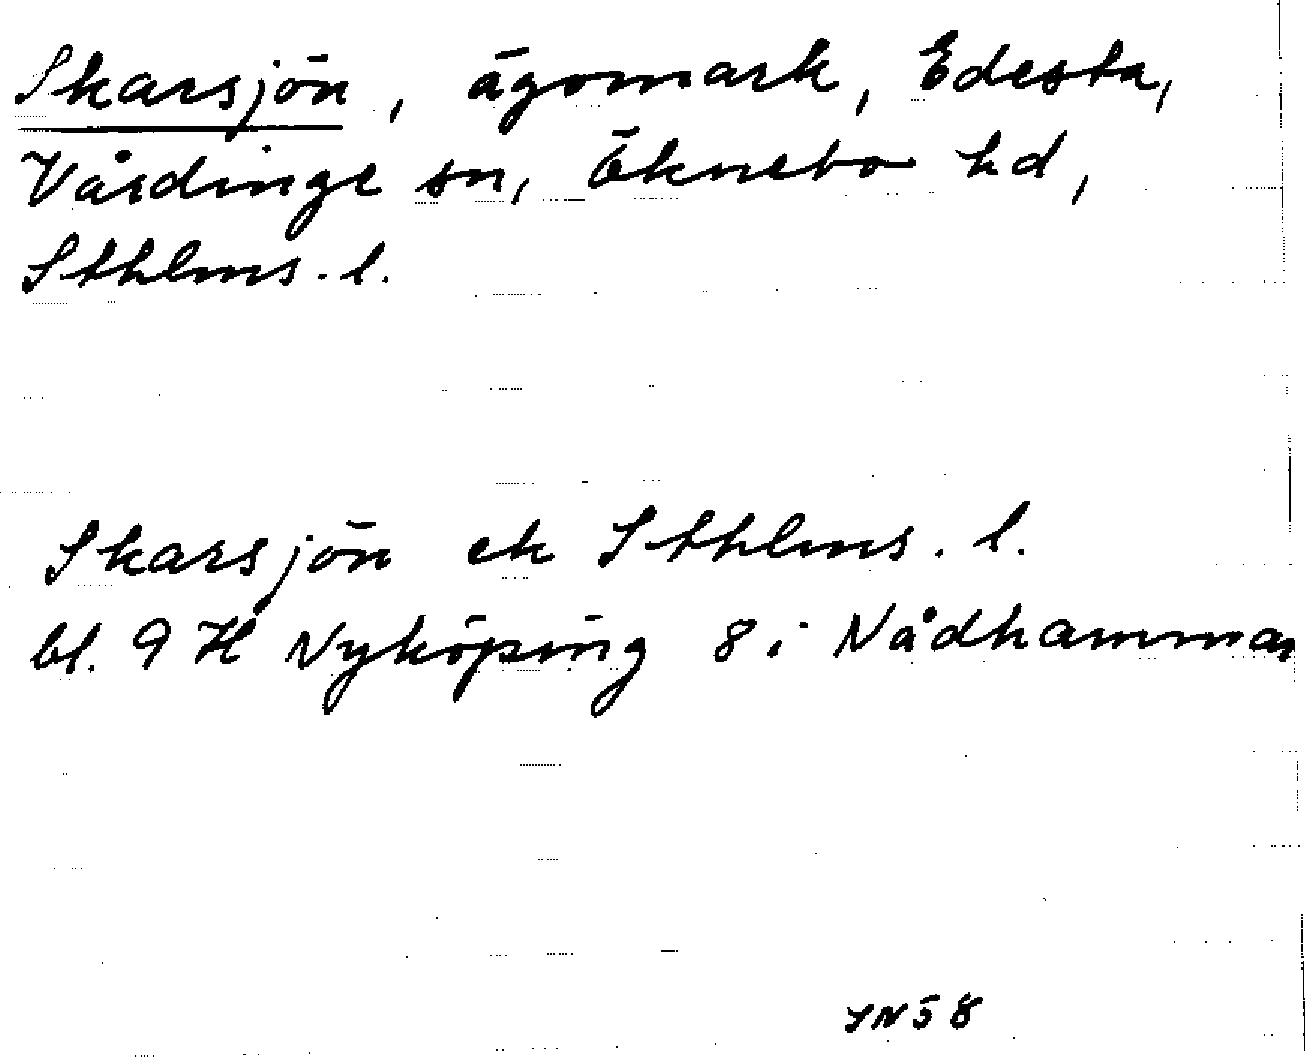 Skarsjön, ägomark, Edesta,
Vårdinge sn, Öknebo hd,
Sthlms. l.
Skarsjön ek Sthlms. l.
bl. 9 H Nyköping 8 i Nådhammar
YN58